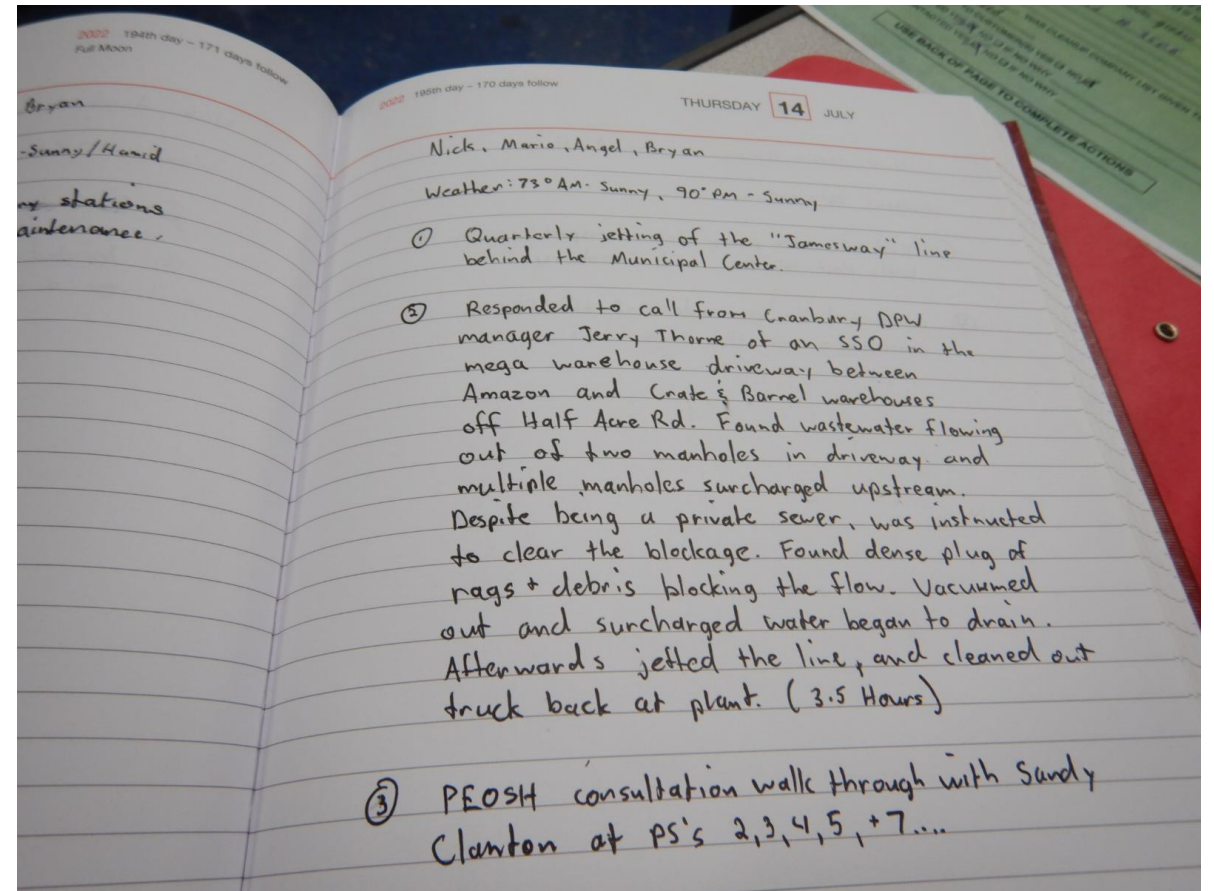 2022 194th day – 171 days follow
Full Moon
Bryan
-Sunny/Hamid
stations
aintenance.
2022 195th day – 170 days follow
THURSDAY 14 JULY
Nick, Mario, Angel, Bryan
Weather: 73° AM - Sunny, 90° PM - Sunny
① Quarterly jetting of the "Jamesway" line
behind the Municipal Center.
② Responded to call from Cranbury DPW
manager Jerry Thorne of an SSO in the
mega warehouse driveway between
Amazon and Crate & Barrel warehouses
off Half Acre Rd. Found wastewater flowing
out of two manholes in driveway and
multiple manholes surcharged upstream.
Despite being a private sewer, was instructed
to clear the blockage. Found dense plug of
rags + debris blocking the flow. Vacuumed
out and surcharged water began to drain.
Afterwards jetted the line, and cleaned out
truck back at plant. (3.5 Hours)
③ PEOSH consultation walk through with Sandy
Clanton at PS's 2,3,4,5,+7....
USE BACK OF PAGE TO COMPLETE ACTIONS